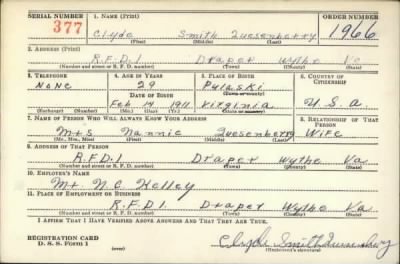 SERIAL NUMBER 1. NAME (Print) ORDER NUMBER
377 Clyde Smith Quesenberry 1966
(First) (Middle) (Last)
2. ADDRESS (Print)
R.F.D.1 Draper Wythe Va
(Number and street or R. F. D. number) (Town) (County) (State)
3. TELEPHONE 4. AGE IN YEARS 5. PLACE OF BIRTH 6. COUNTRY OF CITIZENSHIP
None 29 Pulaski
(Town or county)
DATE OF BIRTH
Feb 14 1911 Virginia U.S.a.
(Exchange) (Number) (Mo.) (Day) (Yr.) (State or country)
7. NAME OF PERSON WHO WILL ALWAYS KNOW YOUR ADDRESS 8. RELATIONSHIP OF THAT PERSON
Mrs Nannie Quesenberry Wife
(Mr., Mrs., Miss) (First) (Middle) (Last)
9. ADDRESS OF THAT PERSON
R.F.D.1 Draper Wythe Va
(Number and street or R. F. D. number) (Town) (County) (State)
10. EMPLOYER'S NAME
Mr N.C. Kelley
11. PLACE OF EMPLOYMENT OR BUSINESS
R.F.D.1 Draper Wythe Va
(Number and street or R. F. D. number) (Town) (County) (State)
I AFFIRM THAT I HAVE VERIFIED ABOVE ANSWERS AND THAT THEY ARE TRUE.
REGISTRATION CARD
D. S. S. Form 1 Clyde Smith Quesenberry
(Registrant's signature)